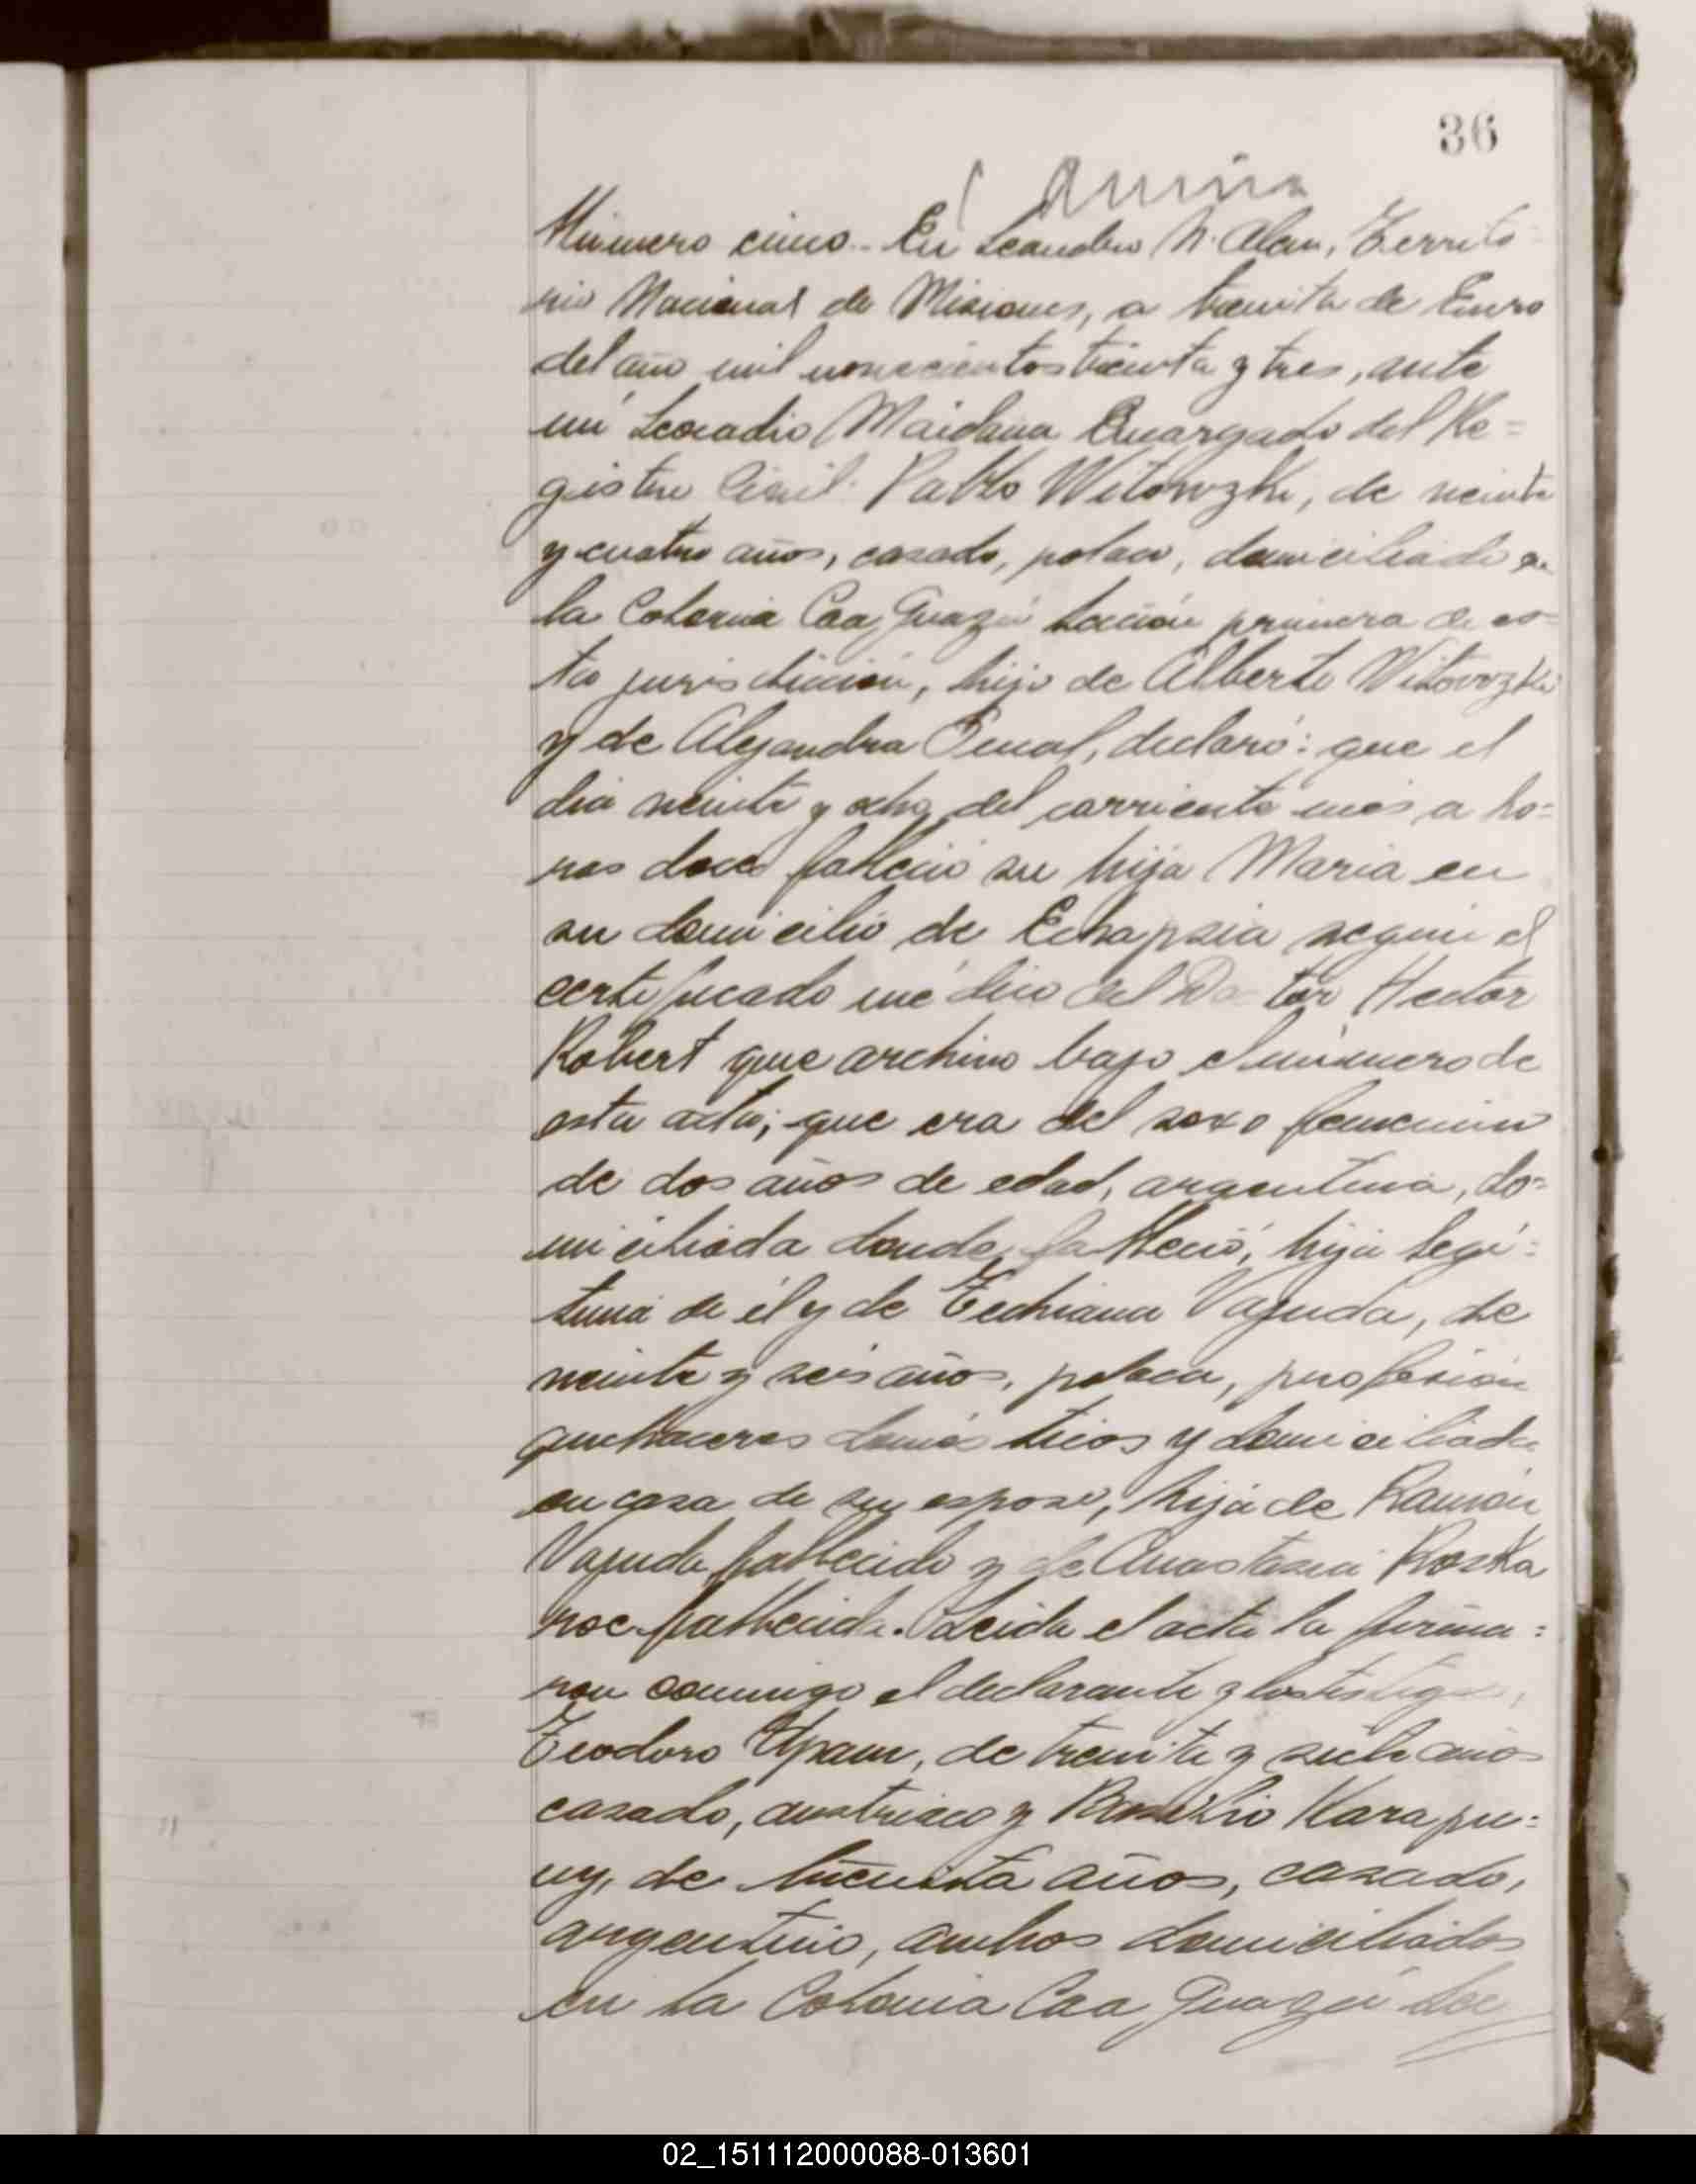 36
Número cinco.- En Leandro N. Alem, Territo-
rio Nacional de Misiones, a treinta de Enero
del año mil novecientos treinta y tres, ante
mí Leocadio Maidana Encargado del Re=
gistro Civil. Pablo Witovozki, de veinte
y cuatro años, casado, polaco, domiciliado en
la Colonia Caa Guazú Sección primera de es-
ta jurisdicción, hijo de Alberto Witovozki
y de Alejandra Senal, declaró: que el
día veinte y ocho del corriente mes a ho=
ras doce falleció su hija Maria en
su domicilio de Eclapsia según el
certificado médico del Doctor Hector
Robert que archivo bajo el número de
esta acta; que era del sexo femenino
de dos años de edad, argentina, do=
miciliada donde falleció, hija legí=
tima de él y de Techiana Vajuda, de
veinte y seis años, polaca, profesión
quehaceres domésticos y domiciliada
en casa de su esposo, hija de Ramón
Vajuda fallecido y de Anastasia Roska
fallecida. Leida el acta la firma=
ron conmigo el declarante y los testigos,
Teodoro de treinta y siete años
casado, austriaco y Basilio Karapu=
ny, de treinta años, casado,
argentino, ambos domiciliados
en la Colonia Caa Guazú Sec
02_151112000088-013601